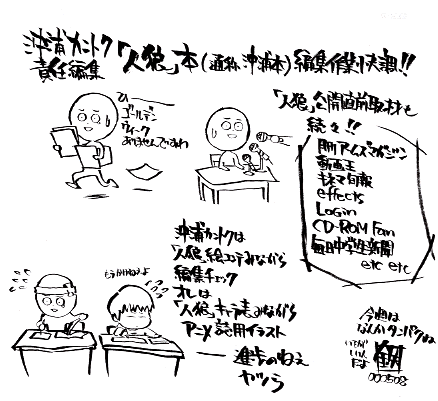 沖浦カントク「人狼」本(通称沖浦本)編集作業快調!!
責任編集
ひー
ゴールデン
ウィーク
ありませんですわ
「人狼」公開直前取材も
続々!!
月刊アニメージュ
動画王
キネマ旬報
effects
LOGiN
CD-ROM Fan
毎日中学生新聞
etc etc
沖浦カントクは
「人狼」絵コンテみながら
編集チェック
オレは
「人狼」キャラ表みながら
アニメ誌用イラスト
進歩のねえ
ヤツら
今週は
000508